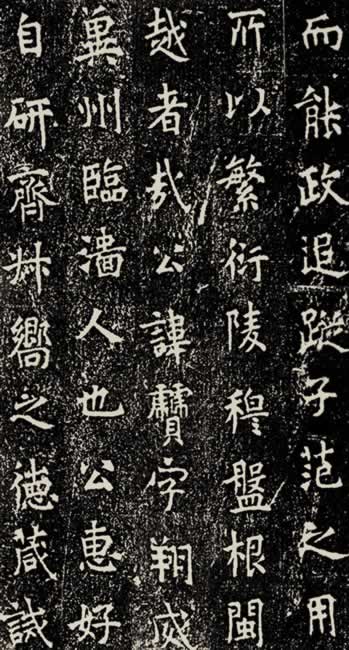 而能政追蹤子范之用
所以繁衍陵穆盤根閩
越者哉公諱字翔威
冀州臨濇人也公惠好
自研齊艸嚮之德蒇誠